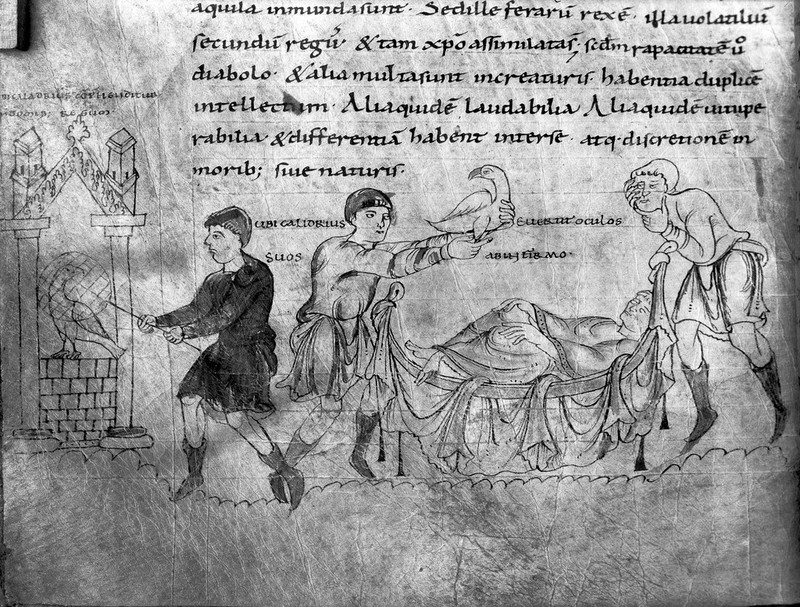 aquila inmunda sunt. Sed ille ferarū rex ē. illa volatiliū
secundū regū. & tam xp̄o assimilatas; scdm rapacitatē ū
diabolo. & alia multa sunt in creaturis habentia duplicē
intellectum. Alia quidē laudabilia Alia quidē vitupe
rabilia & differentiā habent inter se. atq. discretionē in
morib; sive naturis.
UBI CALIDRIUS
EVERTIT OCULOS
SUOS
AB INFIRMO.